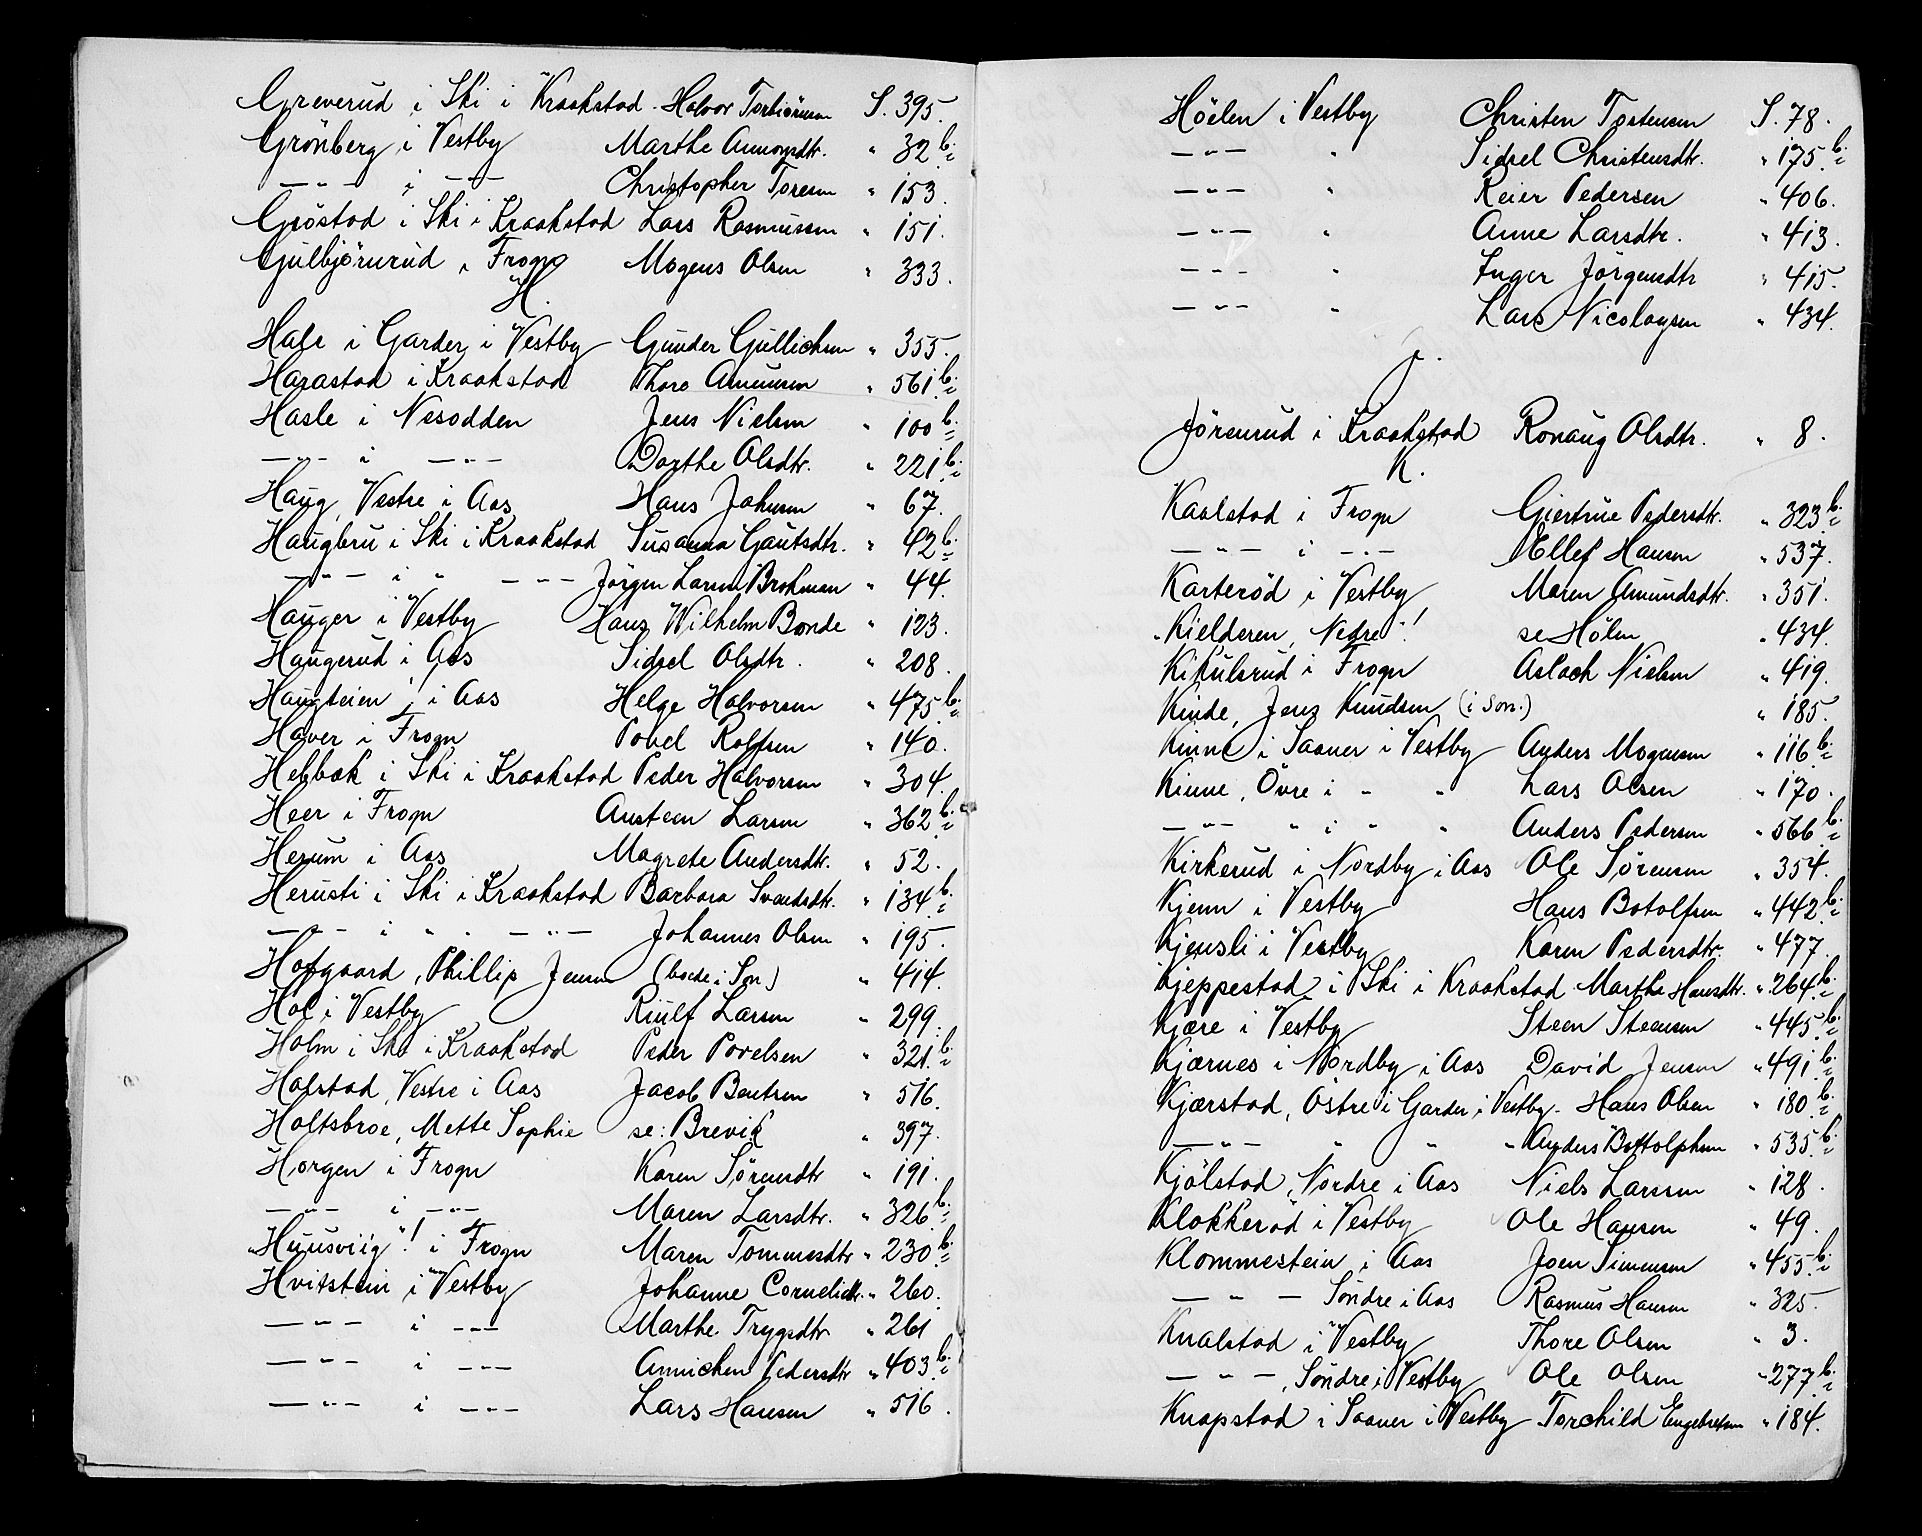 Greverud i Ski i Kraakstad. Halvor Torbiörnsen S. 395.
Grönberg i Vestby Marthe Amonsdtr. " 32 b.
— " — i — " — Christopher Toresen " 153.
Gröstad i Ski i Kraakstad Lars Rasmussen " 151.
Gulbjörnrud i Frogn Mogens Olsen " 333.
H.
Hale i Garder i Vestby Gunder Gullichsen " 355.
Harastad i Kraakstad Thore Amunsen " 561 b.
Hasle i Nesodden Jens Nielsen " 100 b.
— " — i — " — Dorthe Olsdtr. " 221 b.
Haug, Vestre i Aas Hans Johnsen " 67.
Haugbru i Ski i Kraakstad Susanna Gautsdtr. " 42 b.
— " — i " — " — Jörgen Larsen Brohman " 44.
Hauger i Vestby Hans Wilhelm Bonde " 123.
Haugerud i Aas Sidsel Olsdtr. " 208.
Haugteien i Aas Helge Halvorsen " 475 b.
Haver i Frogn Povel Rolfsen " 140.
Hebbæk i Ski i Kraakstad Peder Halvorsen " 304.
Heer i Frogn Austeen Larsen " 362 b.
Herum i Aas Magrete Andersdtr. " 52.
Herusti i Ski i Kraakstad Barbara Svendsdtr. " 134 b.
— " — i " " — " — Johannes Olsen " 195.
Hofgaard, Phillip Jensen (boede i Son) " 414.
Hol i Vestby Riulf Larsen " 299.
Holm i Ski i Kraakstad Peder Povelsen " 321 b.
Holstad, Vestre i Aas Jacob Bentsen " 516.
Holtsbroe, Mette Sophie se: Brevik " 397.
Horgen i Frogn Karen Sörensdtr " 191.
— " — i — " — Maren Larsdtr. " 326 b.
"Huusviig"! i Frogn Maren Tommesdtr " 230 b.
Hvitstein i Vestby Johanne Cornelidtr. " 260.
— " — i — " — Marthe Trygsdtr " 261
— " — i — " — Annichen Pedersdtr " 403 b.
— " — i — " — Lars Hansen " 516.
Höelen i Vestby Christen Tostensen S. 78.
— " — " Sidsel Christensdtr. " 175 b.
— " — " Reier Pedersen " 406.
— " — " Anne Larsdtr. " 413.
— " — " Inger Jörgensdtr " 415.
— " — " Lars Nicolaysen " 434.
J.
Jörenrud i Kraakstad Ronaug Olsdtr. " 8.
K.
Kaalstad i Frogn Giertrue Pedersdtr. " 323 b.
— " — i — " — Ellef Hansen " 537.
Karteröd i Vestby Maren Amundsdtr. " 351.
"Kielderen, Nedre"! se Hölen " 434.
Kikulsrud i Frogn Aslach Nielsen " 419.
Kinde, Jens Knudsen (i Son.) " 185.
Kinne i Saaner i Vestby Anders Mogensen " 116 b.
Kinne, Övre i " " Lars Olsen " 170.
— " — " i " " Anders Pedersen " 566 b.
Kirkerud i Nordby i Aas Ole Sörensen " 354.
Kjenn i Vestby Hans Botolfsen " 442 b.
Kjensli i Vestby Karen Pedersdtr. " 477.
Kjeppestad i Ski i Kraakstad Marthe Hansdtr. " 264 b.
Kjære i Vestby Steen Steensen " 445 b.
Kjærnes i Nordby i Aas David Jensen " 491 b.
Kjærstad, Östre i Garder i Vestby. Hans Olsen " 180 b.
— " — " " " Anders Bottolphsen " 535 b.
Kjölstad, Nordre i Aas Niels Larssen " 128.
Klokkeröd i Vestby Ole Hansen " 49.
Klommestein i Aas Joen Simensen " 455 b.
— " — Söndre i Aas Rasmus Hansen " 325.
Knalstad i Vestby Thore Olsen " 3.
— " —, Söndre i Vestby Ole Olsen " 277 b.
Knapstad i Saaner i Vestby Torchild Engebretsen " 184.